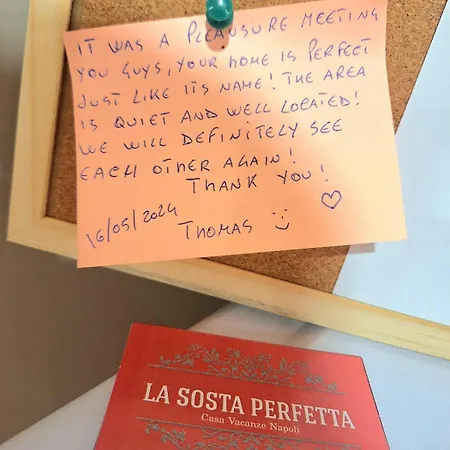 IT WAS A PLEAUSURE MEETING
YOU GUYS, YOUR HOME IS PERFECT
JUST LIKE ITS NAME! THE AREA
IS QUIET AND WELL LOCATED!
WE WILL DEFINITELY SEE
EACH OTHER AGAIN!
THANK YOU!
16/05/2024
THOMAS
LA SOSTA PERFETTA
Casa Vacanze Napoli